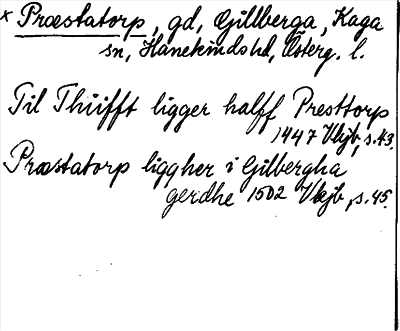 x Præstatorp, gd, Gillberga, Kaga
sn, Hanekinds hd, Österg. l.
Til Thüifft ligger halff Presttorp
1447 Vkjb, s.43.
Præstatorp liggher i Gilbergha
gerdhe 1502 Vkjb, s.45.